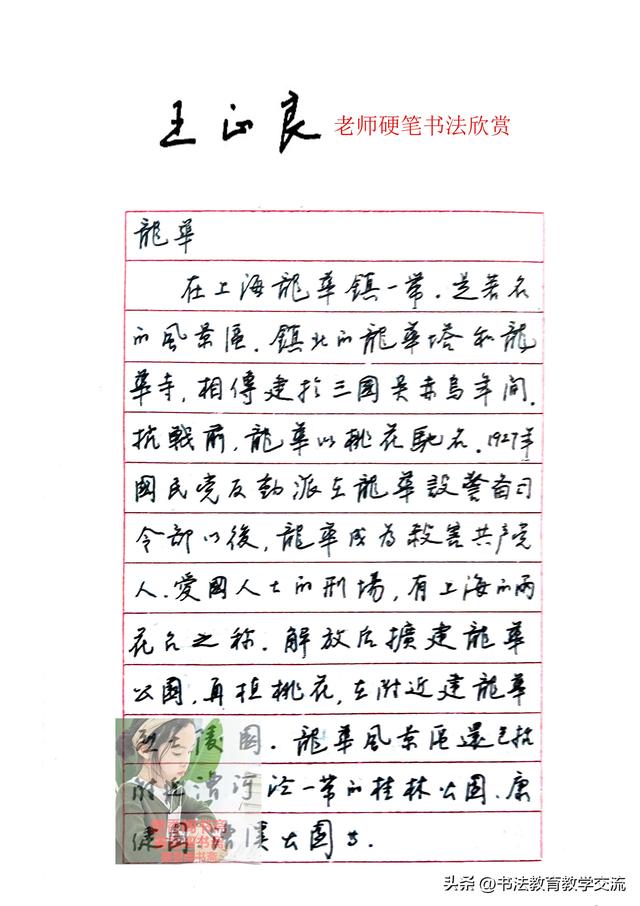 王正良 老师硬笔书法欣赏
龍華
在上海龍華鎮一帶.是著名
的風景區.鎮北的龍華塔和龍
華寺,相傳建於三國吳赤烏年間.
抗戰前,龍華以桃花馳名.1927年
國民党反動派在龍華設警备司
令部以後,龍華成為殺害共产党
人、愛國人士的刑場,有上海的雨
花台之称.解放后擴建龍華
公園,再植桃花,在附近建龍華
烈士陵園.龍華風景區還包括
附近漕河泾一带的桂林公園、康
健園、漕溪公園等.
头条 @书法教育教学交流